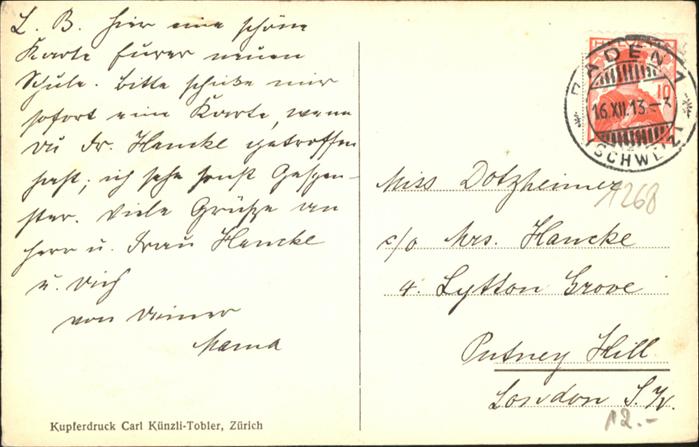 L. B. hier eine schöne
Karte Eurer neuen
Schule. Bitte schicke mir
sofort eine Karte, wenn
Du Fr. Hancke getroffen
hast; ich sehe sonst Gespen-
ster. Viele Grüsse an
Herr u. Frau Hancke
u. Dich
von Deiner
Mama
Kupferdruck Carl Künzli-Tobler, Zürich
HELVETIA
10
BADEN 1
16.XII.13-3
(SCHWEIZ)
Miss Dotzheimer
1268
c/o Mrs. Hancke
4. Lytton Grove
Putney Hill
London S.W.
12.-